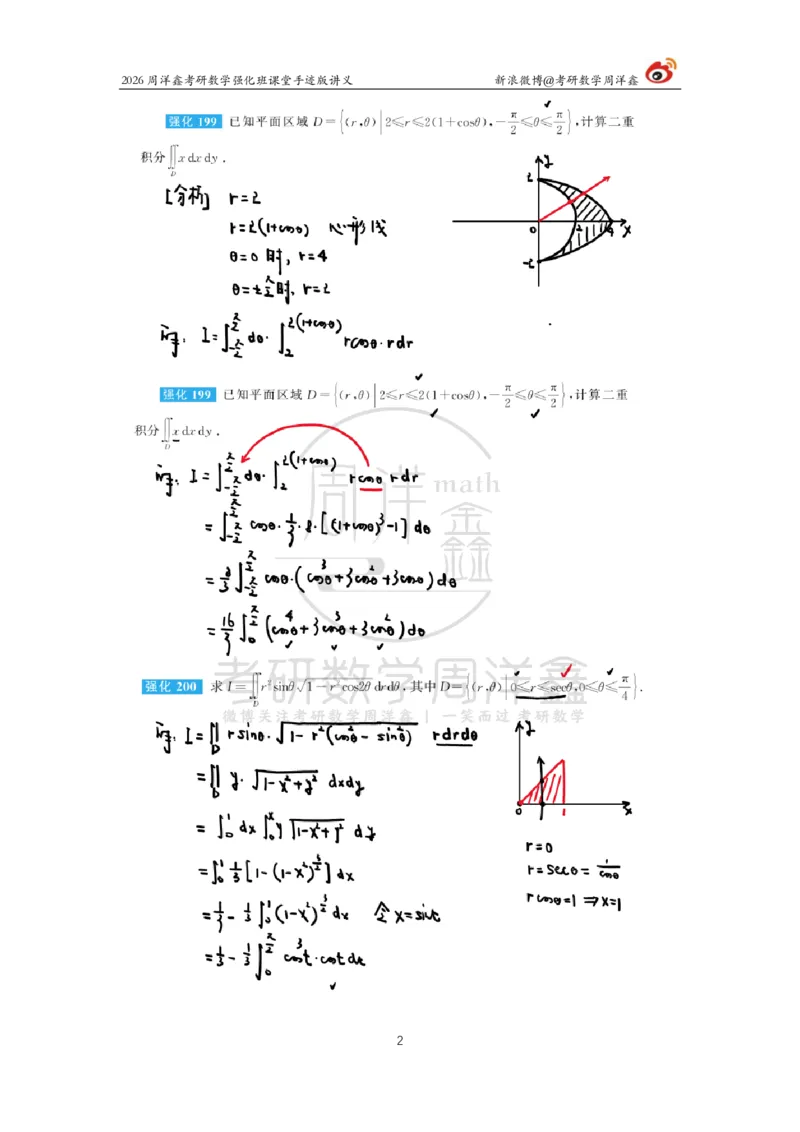 2026 周洋鑫考研数学强化班课堂手迹版讲义 新浪微博@考研数学周洋鑫
强化 199 已知平面区域 D={(r,θ)|2≤r≤2(1+cosθ),-π/2≤θ≤π/2},计算二重
积分∬_D xdxdy.
[分析] r=2
r=2(1+cosθ) 心形线
θ=0时, r=4
θ=±π/2时, r=2
y
2
0 2 4 x
-2
解: I=∫_{-π/2}^{π/2} dθ·∫_2^{2(1+cosθ)} rcosθ·rdr
强化 199 已知平面区域 D={(r,θ)|2≤r≤2(1+cosθ),-π/2≤θ≤π/2},计算二重
积分∬_D xdxdy.
解: I=∫_{-π/2}^{π/2} dθ·∫_2^{2(1+cosθ)} rcosθ rdr
=∫_{-π/2}^{π/2} cosθ·1/3·8·[(1+cosθ)^3-1]dθ
=8/3∫_{-π/2}^{π/2} cosθ·(cos^3θ+3cos^2θ+3cosθ)dθ
=16/3∫_0^{π/2}(cos^4θ+3cos^3θ+3cos^2θ)dθ
周洋鑫math
考研数学周洋鑫
微博关注考研数学周洋鑫 | 一笑而过 考研数学
强化 200 求 I=∬_D r^2sinθ√(1-r^2cos2θ)drdθ,其中D={(r,θ)|0≤r≤secθ,0≤θ≤π/4}.
解: I=∬_D rsinθ·√(1-r^2(cos^2θ-sin^2θ)) rdrdθ
=∬_D y·√(1-x^2+y^2) dxdy
=∫_0^1 dx∫_0^x y√(1-x^2+y^2) dy
=∫_0^1 1/3[1-(1-x^2)^{3/2}]dx
=1/3-1/3∫_0^1(1-x^2)^{3/2}dx 令x=sint
=1/3-1/3∫_0^{π/2}cos^3t·costdt
y
0 1 x
r=0
r=secθ=1/cosθ
rcosθ=1⇒x=1
2